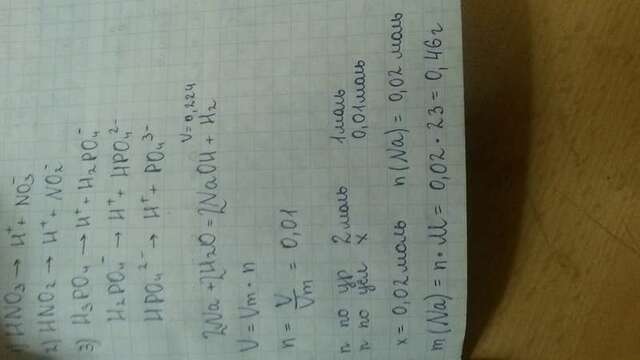 1) HNO₃ → H⁺ + NO₃⁻
2) HNO₂ → H⁺ + NO₂⁻
3) H₃PO₄ → H⁺ + H₂PO₄⁻
H₂PO₄⁻ → H⁺ + HPO₄²⁻
HPO₄²⁻ → H⁺ + PO₄³⁻
V=0,224
2Na + 2H₂O = 2NaOH + H₂
V = Vm · n
n = V/Vm = 0,01
n по ур 2 моль 1 моль
n по усл x 0,01 моль
x = 0,02 моль n(Na) = 0,02 моль
m(Na) = n · M = 0,02 · 23 = 0,46 г